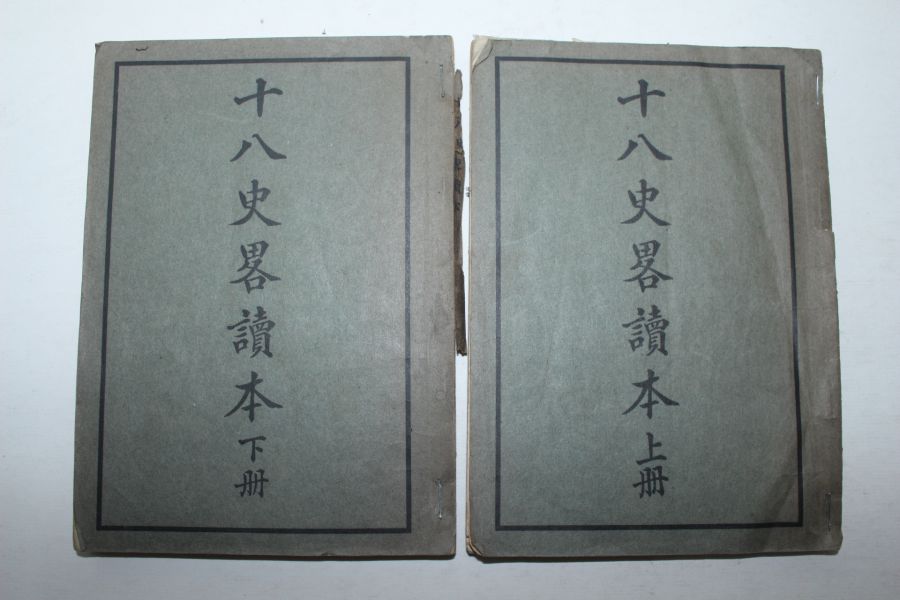 十八史畧讀本上册
十八史畧讀本下册